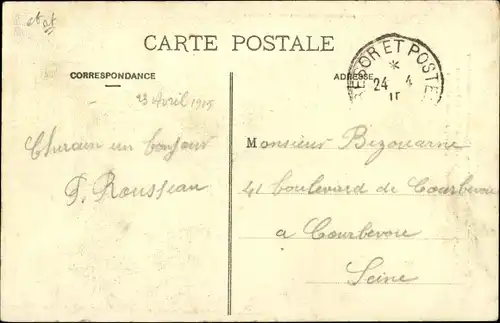 CARTE POSTALE
CORRESPONDANCE
ADRESSE
TRESOR ET POSTES
*
24 4
15
23 Avril 1915
un bonjour
P. Rousseau
Monsieur Bizouarne
41 boulevard de Courbevoie
a Courbevoie
Seine